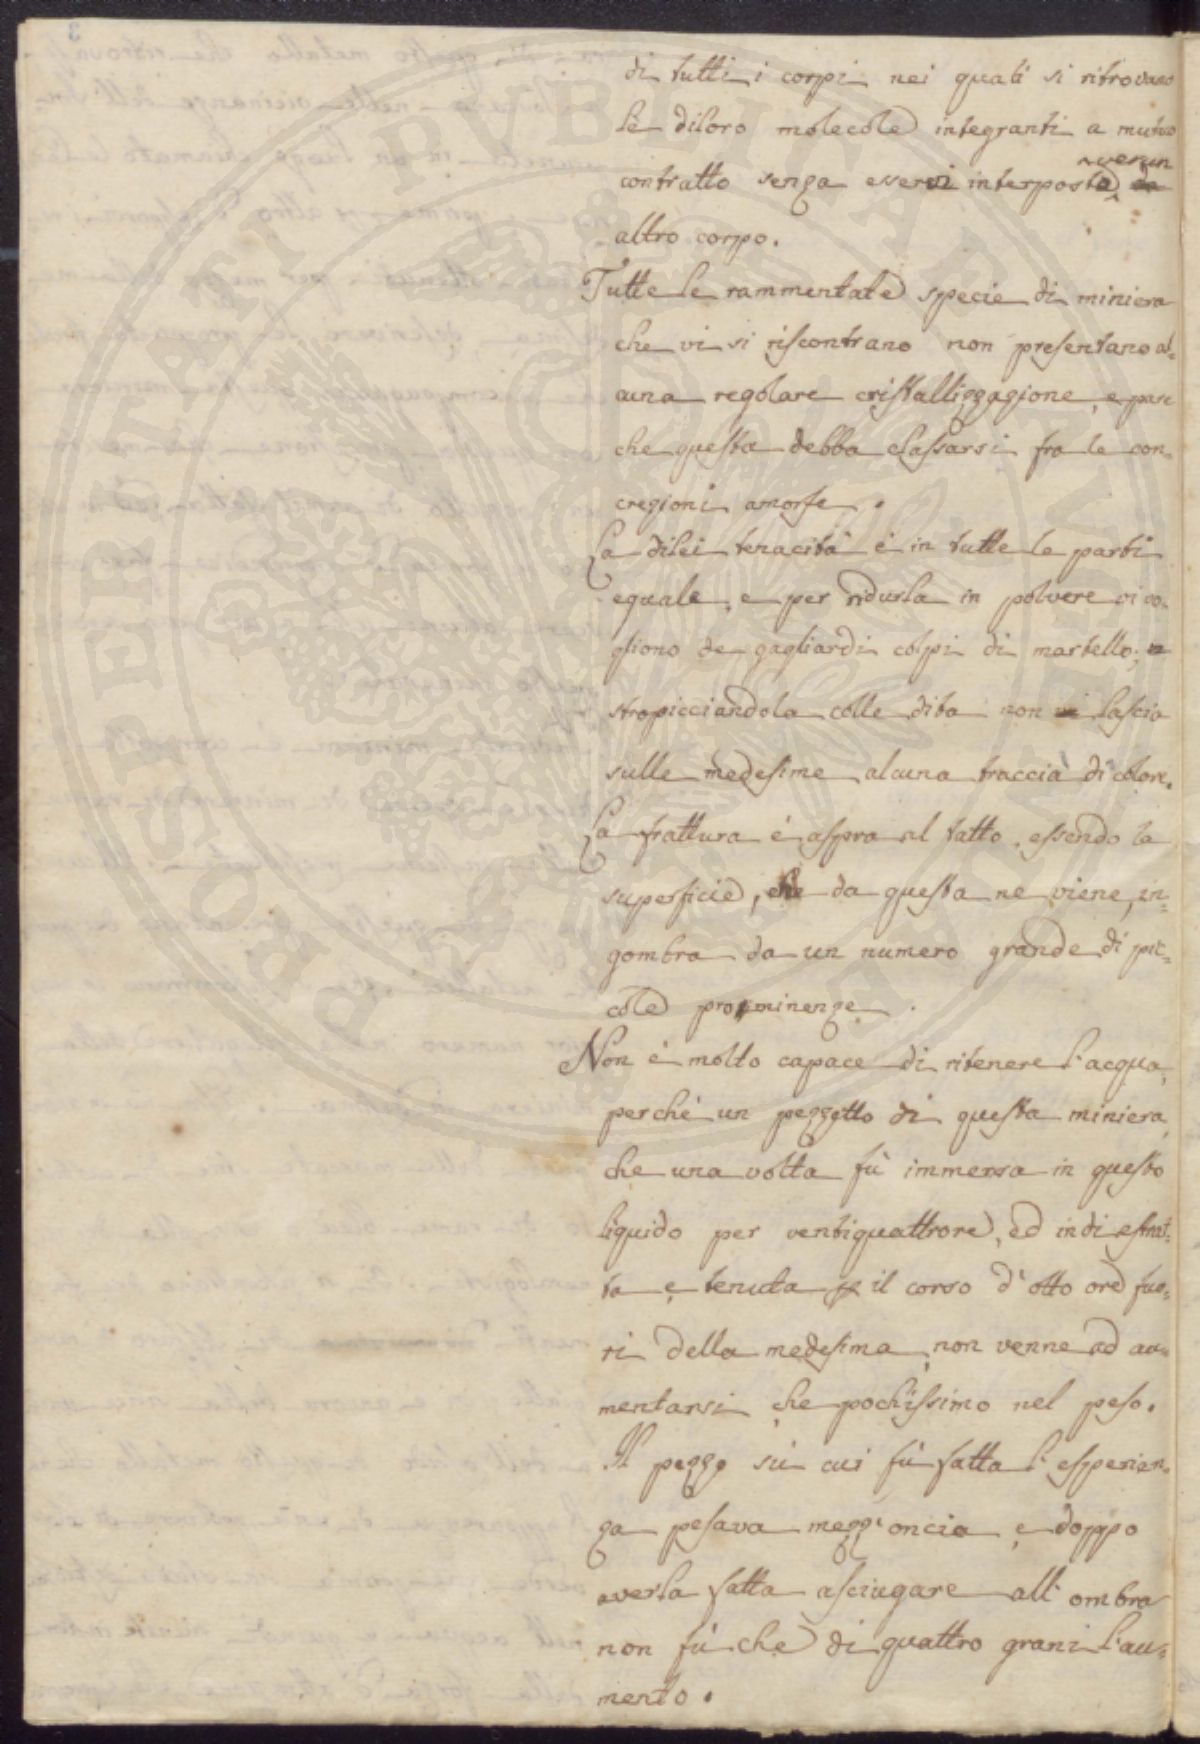 3
di tutti i corpi nei quali si ritrovano
le diloro molecole integranti a mutuo
contratto senza esservi interposto verun
altro corpo.
Tutte le rammentate specie di miniera
che vi si riscontrano non presentano al=
cuna regolare cristallizzazione, e pare
che questa debba classarsi fra le con=
crezioni amorfe.
La dilei tenacità è in tutte le parti
equale, e per ridurla in polvere vi vo=
gliono de gagliardi colpi di martello;
stropicciandola colle dita non lascia
sulle medesime alcuna traccia di colore.
La frattura è aspra al tatto, essendo la
superficie, che da questa ne viene, in=
gombra da un numero grande di pic=
cole prominenze.
Non è molto capace di ritenere l'acqua,
perché un pezzetto di questa miniera,
che una volta fù immersa in questo
liquido per ventiquattrore, ed indi estrat=
ta e tenuta p il corso d'otto ore fuo=
ri della medesima, non venne ad au=
mentarsi che pochissimo nel peso.
Il pezzo sù cui fù fatta l'esperien=
za pesava mezz'oncia, e doppo
averla fatta asciugare all'ombra
non fù che di quattro grani l'au=
mento.
PROSPERITATI PVBLICAE